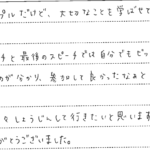 プルだけど、大切なことを学ばせて
チと最後のスピーチでは自分でもビッ
のが分かり、参加して良かったなぁと
々しょうじんして行きたいと思います
がとうございました。